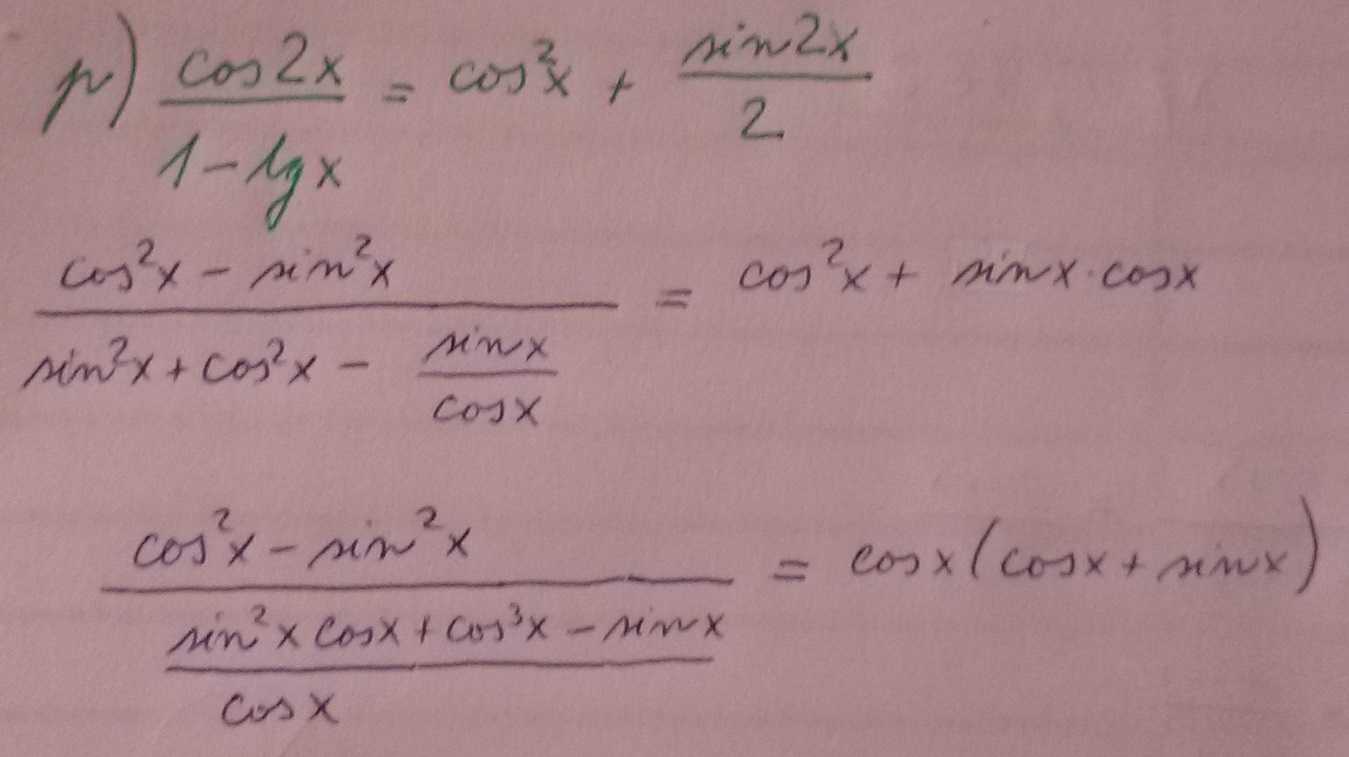 p) cos2x / 1-tgx = cos²x + sin2x / 2
cos²x - sin²x / sin²x + cos²x - sinx / cosx = cos²x + sinx·cosx
cos²x - sin²x / sin²x cosx + cos³x - sinx / cosx = cosx(cosx + sinx)